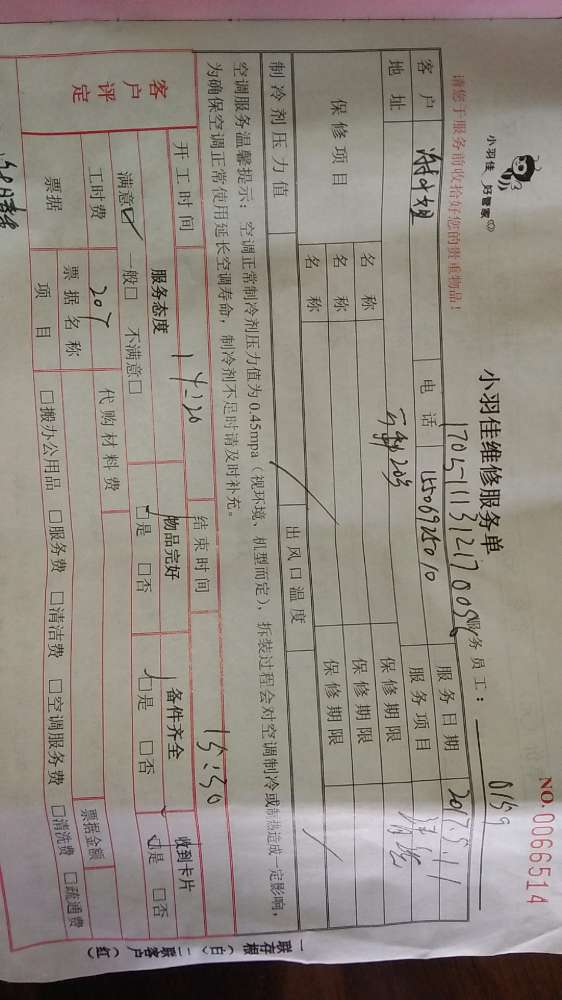 小羽佳 好管家
小羽佳维修服务单
NO.0066514
请您于服务前收拾好您的贵重物品！
服务员工： 0159
客户
电话 15506925010
服务日期 2017.5.11
地址
服务项目 清洗
保修项目
名称
保修期限
名称
保修期限
名称
保修期限
制冷剂压力值
出风口温度
空调服务温馨提示：空调正常制冷剂压力值为0.45mpa（视环境、机型而定），拆装过程会对空调制冷或制热造成一定影响，
为确保空调正常使用延长空调寿命，制冷剂不足时请及时补充。
开工时间 14:20
结束时间 15:30
客户评定
服务态度
物品完好
备件齐全
收到卡片
满意☑ 一般□ 不满意□
☑是 □否
☑是 □否
☑是 □否
工时费 207
代购材料费
票据
票据名称
票据金额
项目
□搬办公用品 □服务费 □清洁费 □空调服务费 □清洗费 □疏通费
一联存根（白）二联客户（红）